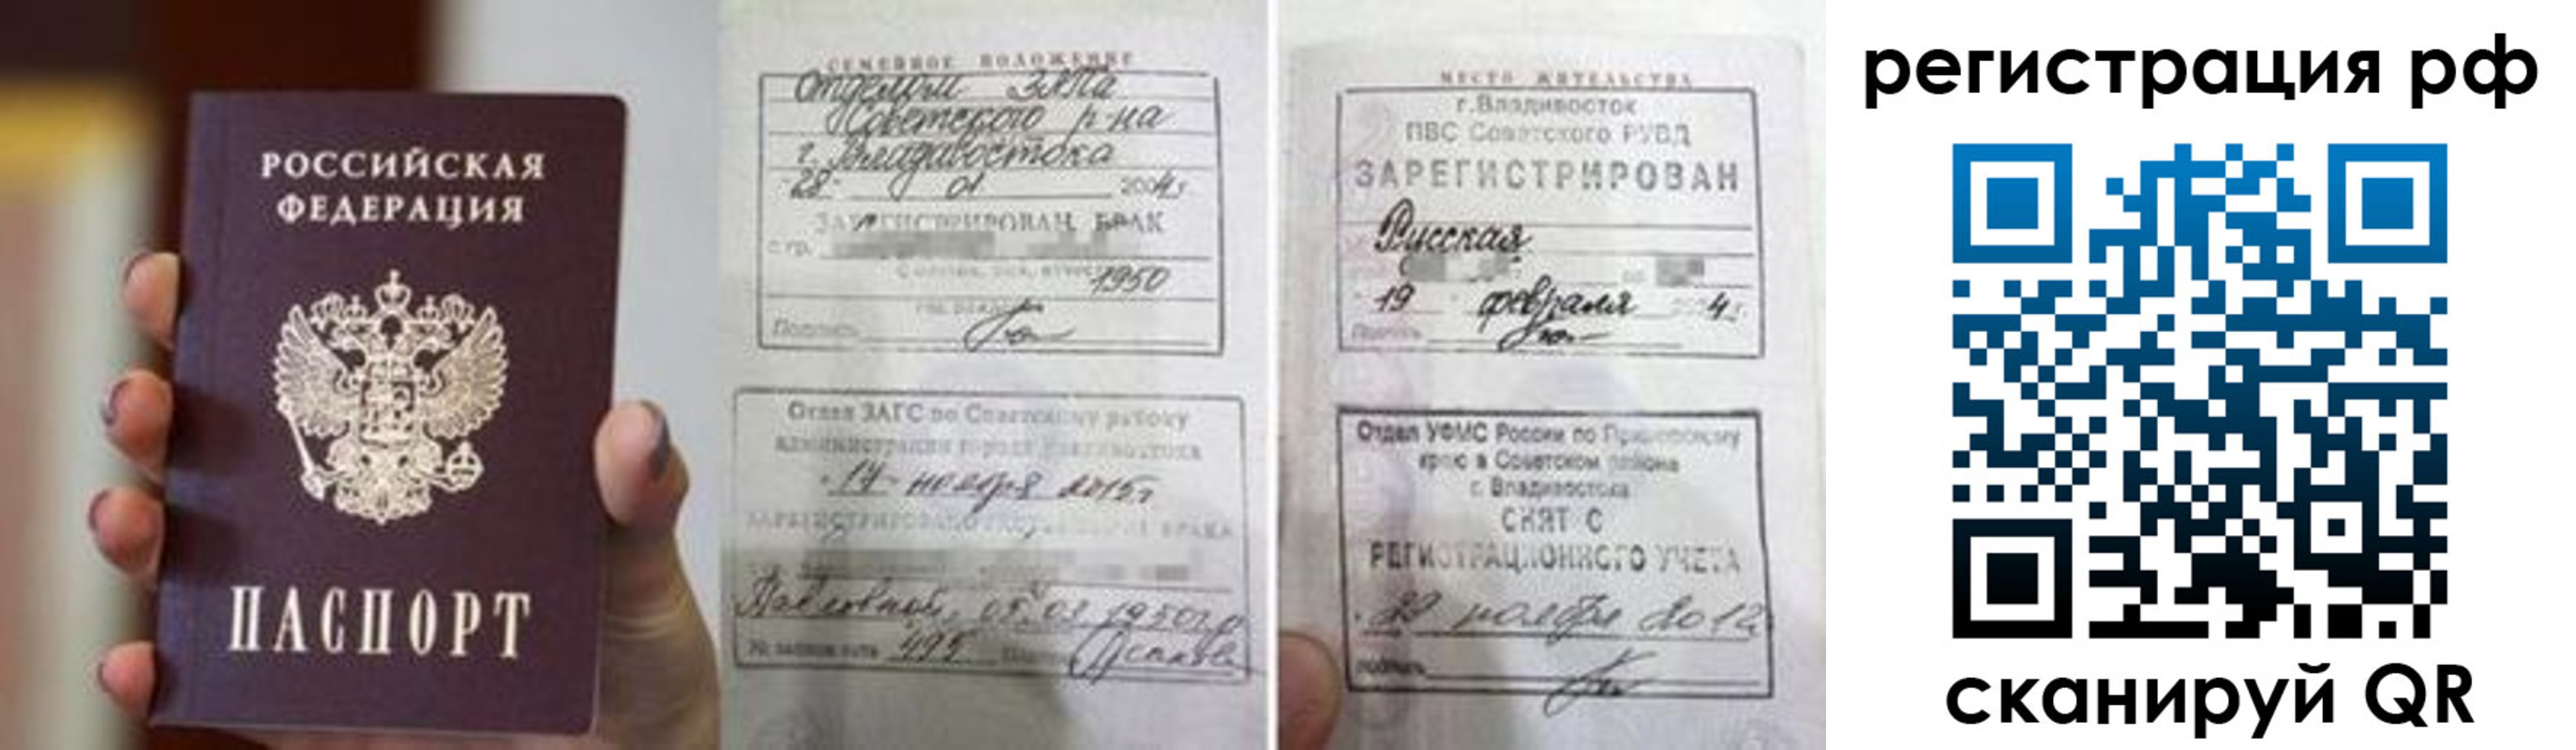 РОССИЙСКАЯ
ФЕДЕРАЦИЯ
ПАСПОРТ
СЕМЕЙНОЕ ПОЛОЖЕНИЕ
Отделом ЗАГСа
Советского р-на
г. Владивостока
"28" 01 2004 г.
ЗАРЕГИСТРИРОВАН БРАК
с гр.
1950
Подпись
Отдел ЗАГС по Советскому району
администрации города Владивостока
"17" ноября 2015г
БРАКА
Павловной, 05.03.1950г.р
495
МЕСТО ЖИТЕЛЬСТВА
г.Владивосток
ПВС Советского РУВД
ЗАРЕГИСТРИРОВАН
Русская
19 февраля 4г.
Подпись
Отдел УФМС России по Приморскому
краю в Советском районе
г. Владивостока
СНЯТ С
РЕГИСТРАЦИОННОГО УЧЕТА
ноября 2012
подпись
регистрация рф
сканируй QR